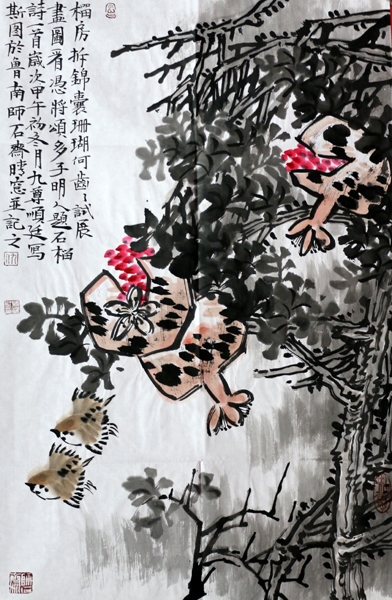 榴房拆錦囊珊瑚何齒〻試展
畫圖看憑將頌多子明人題石榴
詩一首歲次甲午初冬月九尊順廷寫
斯图於魯南師石齋晴窓並記之